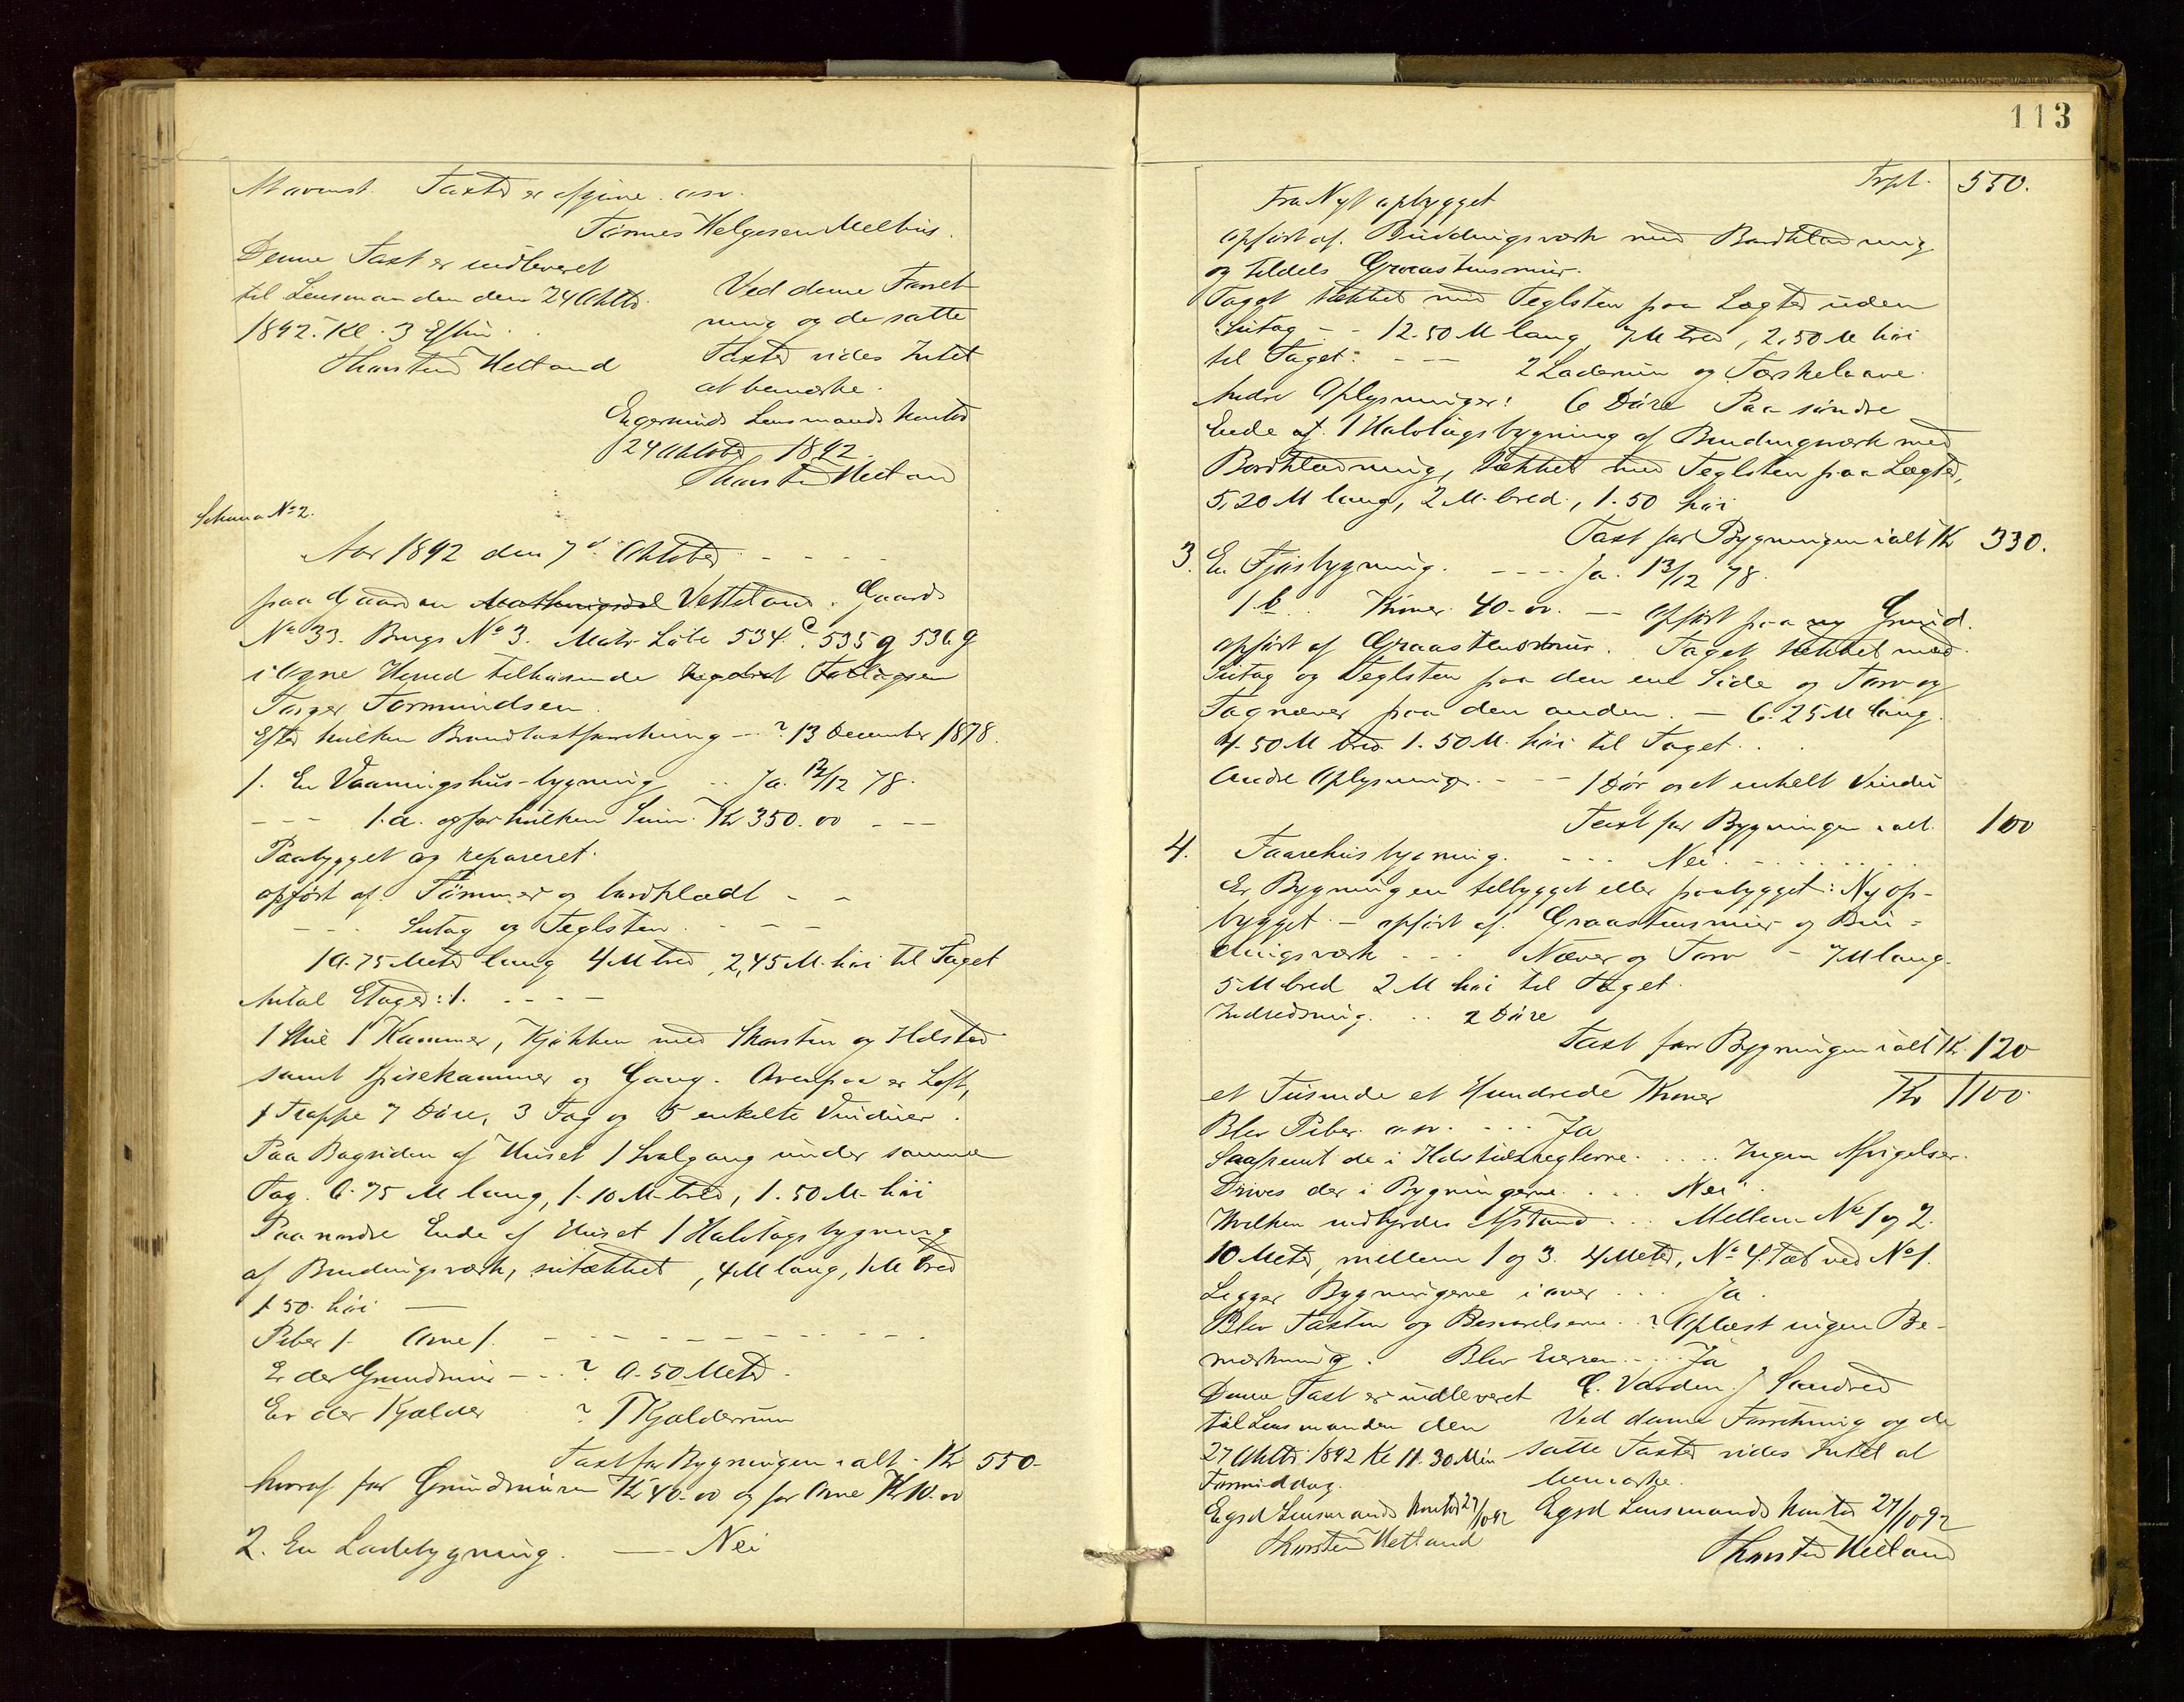 Taxter er afgivne. osv.
Tønnes Helgesen Melhus.
Denne Taxt er indleveret
til Lensmanden den 24 Oktbr.
1892. Kl. 3 Eftm.
Thorsten Hetland
Ved denne Forret-
ning og de satte
Taxter vides Intet
at bemærke.
Egersunds Lensmands Kontor
24 Oktober 1892.
Thorsten Hetland
Schema No 2.
Aar 1892 den 7de Oktober - - - -
paa Gaarden Vetteland. Gaards
No 33. Brugs No 3. Matr. Løbe 534 c. 535 g 536 g
i Ogne Herred tilhørende
Torger Tormundsen.
Efter hvilken Brandtaxtforretning - ? 13 December 1878.
1. En Vaaningshus-bygning - - Ja. 13/12 78.
- - - 1.a. og for hvilken Sum. Kr 350.00 - - -
Paabygget og repareret.
opført af Tømmer og bordklædt - -
- - - Sutag og Teglsten. - - -
10.75 Meter lang 4 M bred, 2,45 M. høi til Taget
Antal Etager: 1. - - - -
1 Stue 1 Kammer, Kjøkken med Skorsten og Ildsted
samt Spisekammer og Gang. Ovenpaa er Loft,
1 Trappe 7 Døre, 3 Fag og 5 enkelte Vinduer.
Paa Bagsiden af Huset 1 Svalgang under samme
Tag. 6.75 M lang, 1.10 M bred, 1.50 M høi
Paa nordre Ende af Huset 1 Halvtagsbygning
af Bindingsværk, sutækket, 4 M lang, 1 M bred
1.50 høi —
Piber 1. Ovne 1. - - - - - - - - -
Er der Grundmur - - - ? 0.50 Meter.
Er der Kjælder ? 1 Kjælderrum
Taxt for Bygningen ialt. Kr 550-
hvoraf for Grundmuren Kr 40-00 og for Ovne Kr 10.00
2. En Ladebygning. — Nei
113
Trpt. 550.
Fra Nyt opbygget
opført af. Bindingsværk med Bordklædning
og tildels Graastensmur.
Taget tækket med Teglsten paa Lægter uden
Sutag - - 12.50 M lang, 7 M bred, 2,50 M høi
til Taget: - - - 2 Laderum og Tærskelaave.
Andre Oplysninger: 6 Døre Paa søndre
Ende af. 1 Halvtagsbygning af Bindingværk med
Bordklædning, Tækket med Teglsten paa Lægter,
5,20 M lang, 2 M. bred, 1.50 høi
Taxt for Bygningen ialt Kr 330.
3. En Fjøsbygning. - - - - Ja. 13/12 78.
1.b. Kroner 40-00. — Opført paa ny Grund.
opført af Graastensmur. Taget tækket med
Sutag og Teglsten paa den ene Side og Torv og
Tagnæver paa den anden. — 6.25 M lang.
4.50 M bred 1.50 M. høi til Taget. . .
Andre Oplysninger. - - - 1 Dør og et enkelt Vindu
Taxt for Bygningen ialt. 100
4. Faarehusbygning. - - - Nei. - - - - - -
Er Bygningen tilbygget eller paabygget: Ny op-
bygget - opført af. Graastensmur og Bin-
dingsværk - - - Næver og Torv - 7 M lang.
5 M bred 2 M høi til Taget.
Indredning. - - 2 Døre
Taxt for Bygningen ialt Kr. 120
et Tusinde et Hundrede Kroner Kr 1100.
Blev Piber osv. - - - Ja
Saafremt de i Ildstedsreglerne. . . . . Ingen Afvigelser.
Drives der i Bygningerne. . . . Nei.
Hvilken indbyrdes Afstand. . . Mellem No 1 og 2.
10 Meter, mellem 1 og 3. 4 Meter, No 4. tæt ved No 1.
Ligger Bygningerne i over . . . Ja.
Blev Taxten og Besvarelserne. . ? Oplæst ingen Be-
mærkning. Blev Eieren. - - Ja
Denne Taxt er indleveret
til Lensmanden den
27 Oktbr. 1892 Kl 11.30 Min
Formiddag.
Egsd Lensmands Kontor 27/10 92
Thorsten Hetland
Ved denne Forretning og de
satte Taxter vides Intet at
bemærke.
Egsd Lensmands Kontor 27/10 92
Thorsten Hetland